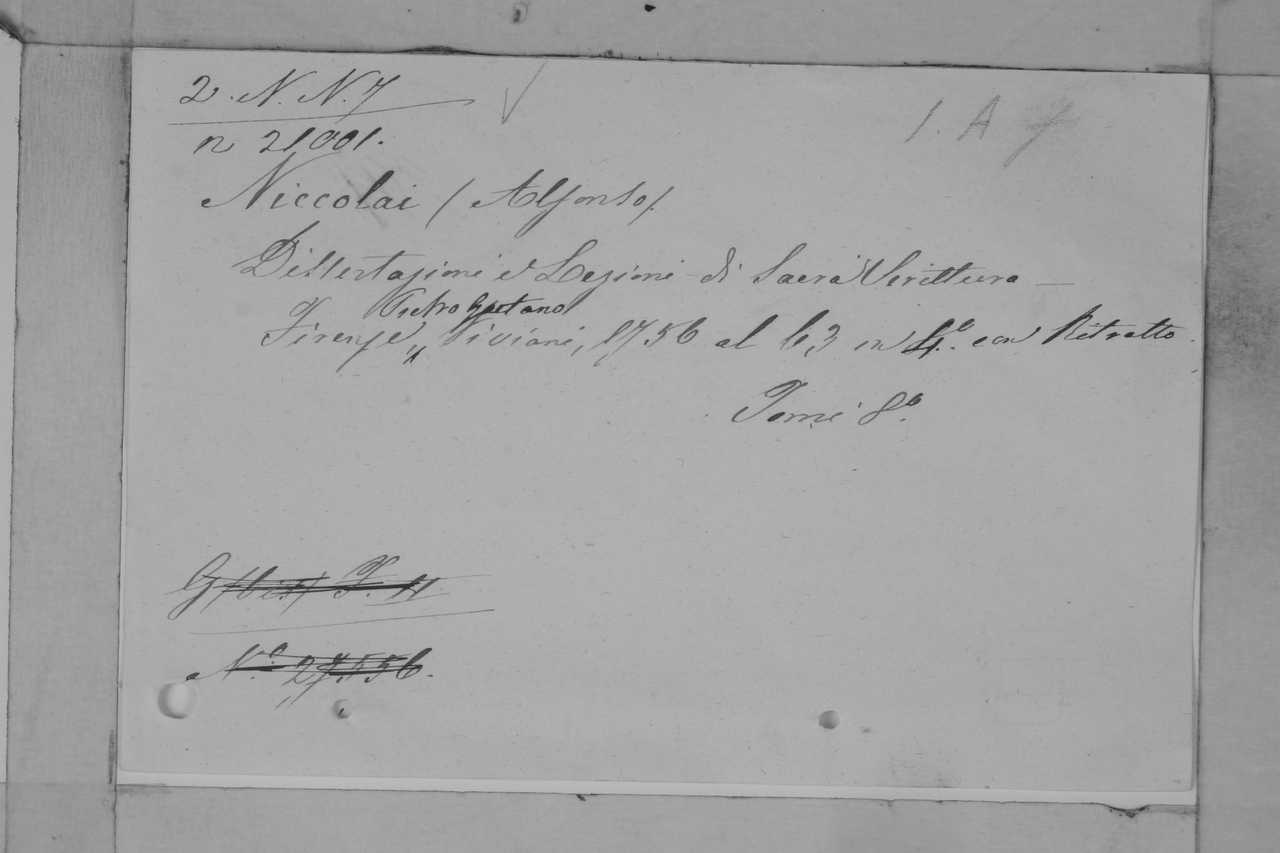 2. N. N. 7
1. A 7
n 21001.
Niccolai (Alfonso).
Dissertazioni e Lezioni di Sacra Scrittura —
Pietro Gaetano
Firenze, Viviani, 1756 al 63 in 4.º con Ritratto.
Tomi 8.º
N.º 27,556.